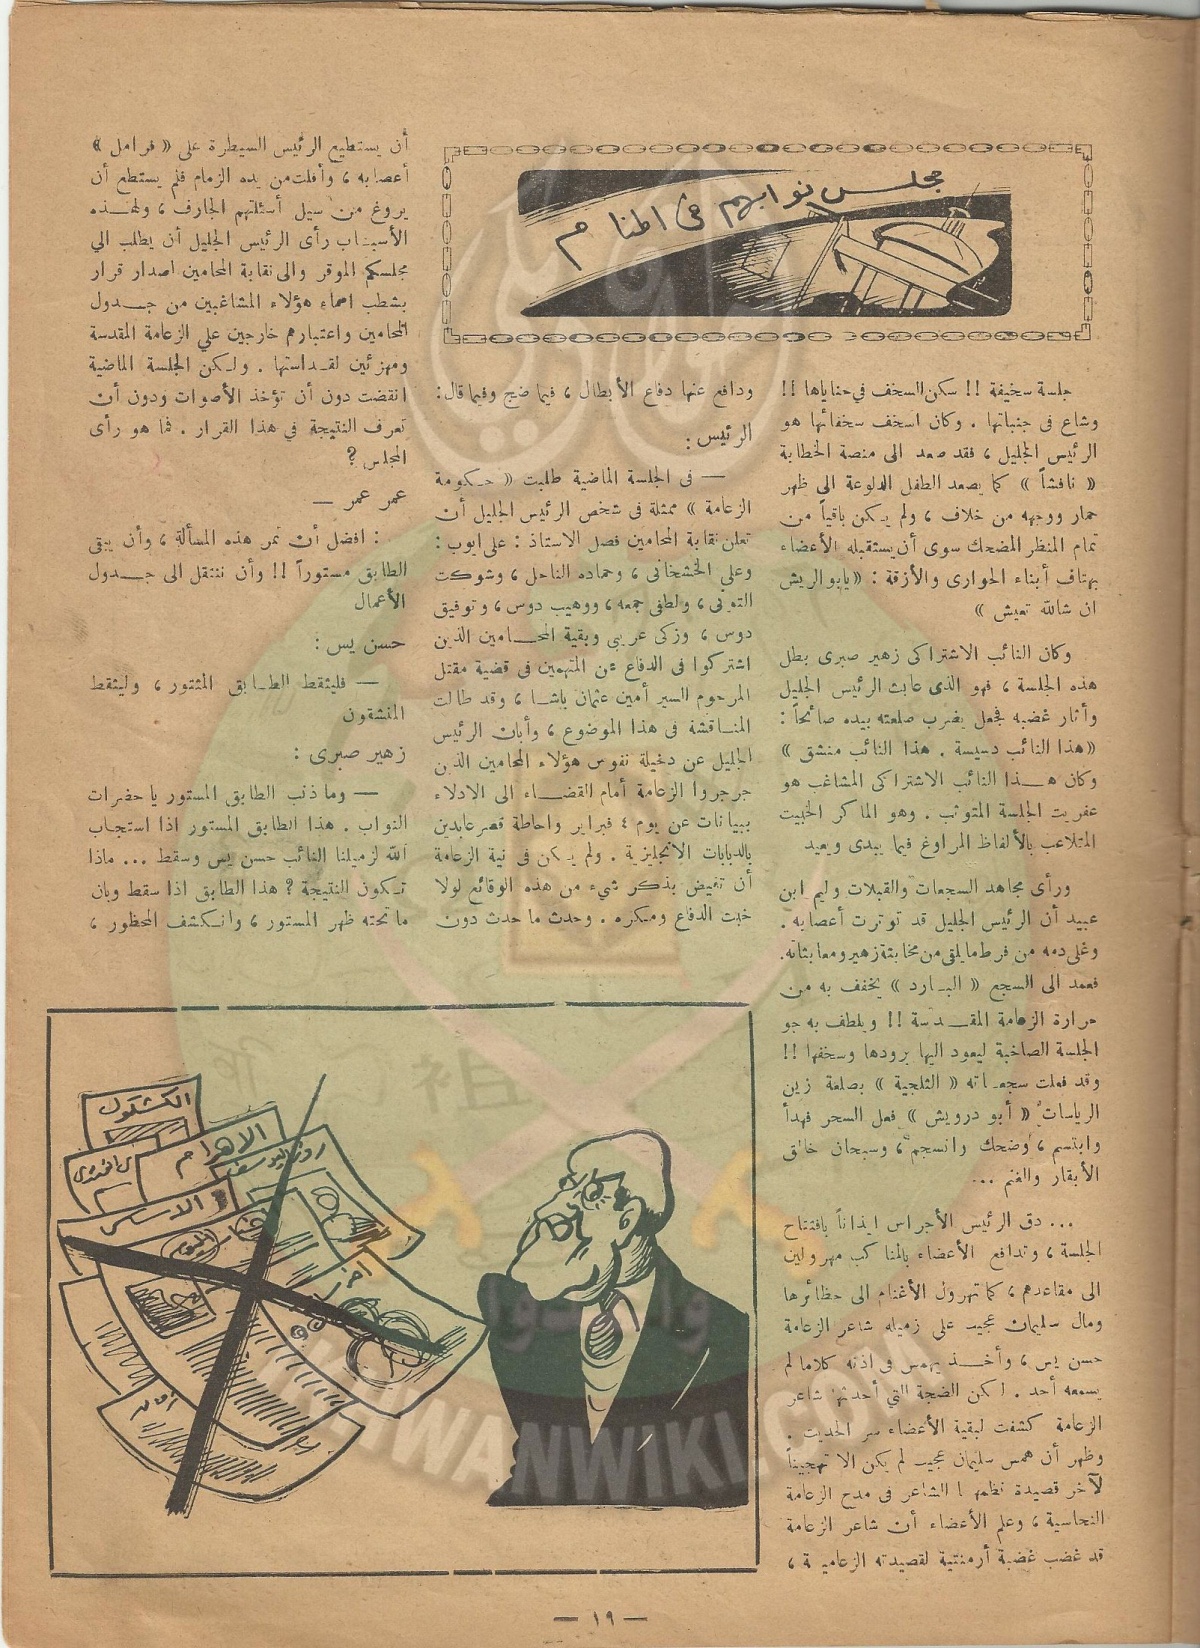 مجلس نوابهم فى المنام
جلسة سخيفة !! سكن السخف في حناياها !!
وشاع فى جنباتها . وكان اسخف سخفائها هو
الرئيس الجليل ، فقد صعد الى منصة الخطابة
« نافشاً » كما يصعد الطفل الدلوعة الى ظهر
حمار ووجهه من خلاف ، ولم يكن باقياً من
تمام المنظر المضحك سوى أن يستقبله الأعضاء
بهتاف أبناء الحوارى والأزقة : « يابو الريش
ان شالله تعيش »
وكان النائب الاشتراكى زهير صبرى بطل
هذه الجلسة ، فهو الذى عابث الرئيس الجليل
وأثار غضبه فجعل يضرب صلعته بيده صائحاً :
« هذا النائب دسيسة . هذا النائب منشق »
وكان هذا النائب الاشتراكى المشاغب هو
عفريت الجلسة المتوثب . وهو الماكر الخبيث
المتلاعب بالألفاظ المراوغ فيما يبدى ويعيد
ورأى مجاهد السجعات والقبلات وليم ابن
عبيد أن الرئيس الجليل قد توترت أعصابه .
وغلى دمه من فرط ما يلقى من مخابثة زهير ومعابثاته.
فعمد الى السجع « البارد » يخفف به من
حرارة الزعامة المقدسة !! ويلطف به جو
الجلسة الصاخبة ليعود اليها برودها وسخفها !!
وقد فعلت سجعاته « الثلجية » بصلعة زين
الرياسات « أبو درويش » فعل السحر فهدأ
وابتسم ، وضحك وانسجم ، وسبحان خالق
الأبقار والغنم ...
... دق الرئيس الأجراس ايذاناً بافتتاح
الجلسة ، وتدافع الأعضاء بالمناكب مهرولين
الى مقاعدهم ، كما تهرول الأغنام الى حظائرها
ومال سليمان عجيب على زميله شاعر الزعامة
حسن يس ، وأخذ يهمس فى اذنه كلاما لم
يسمعه أحد . لكن الضجة التي أحدثها شاعر
الزعامة كشفت لبقية الأعضاء سر الحديث .
وظهر أن همس سليمان عجيب لم يكن الا تهجيناً
لآخر قصيدة نظمها الشاعر فى مدح الزعامة
النحاسية ، وعلم الأعضاء أن شاعر الزعامة
قد غضب غضبة أرمنتية لقصيدته الزعامية ،
ودافع عنها دفاع الأبطال ، فيما ضج وفيما قال :
الرئيس :
— فى الجلسة الماضية طلبت « حكومة
الزعامة » ممثلة فى شخص الرئيس الجليل أن
تعلن نقابة المحامين فصل الاستاذ : على ايوب :
وعلي الخشخانى ، وحماده الناحل ، وشوكت
التونى ، ولطفى جمعه ، ووهيب دوس ، وتوفيق
دوس ، وزكى عريبى وبقية المحامين الذين
اشتركوا فى الدفاع عن المتهمين فى قضية مقتل
المرحوم السير أمين عثمان باشا ، وقد طالت
المناقشة فى هذا الموضوع ، وأبان الرئيس
الجليل عن دخيلة نفوس هؤلاء المحامين الذين
جرجروا الزعامة أمام القضاء الى الادلاء
ببيانات عن يوم ٤ فبراير واحاطة قصر عابدين
بالدبابات الانجليزية . ولم يكن فى نية الزعامة
أن تفيض بذكر شيء من هذه الوقائع لولا
خبث الدفاع ومكره . وحدث ما حدث دون
أن يستطيع الرئيس السيطرة على « فرامل »
أعصابه ، وأفلت من يده الزمام فلم يستطع أن
يروغ من سيل أسئلتهم الجارف ، ولهذه
الأسباب رأى الرئيس الجليل أن يطلب الي
مجلسكم الموقر والى نقابة المحامين اصدار قرار
بشطب اسماء هؤلاء المشاغبين من جدول
المحامين واعتبارهم خارجين علي الزعامة المقدسة
ومهزئين لقداستها . ولكن الجلسة الماضية
انقضت دون أن تؤخذ الأصوات ودون أن
تعرف النتيجة في هذا القرار . فما هو رأى
المجلس ؟
عمر عمر —
: افضل أن تمر هذه المسألة ، وأن يبقى
الطابق مستوراً !! وأن ننتقل الى جدول
الأعمال
حسن يس :
— فليثقط الطابق المثتور ، وليثقط
المنشقون
زهير صبرى :
— وما ذنب الطابق المستور يا حضرات
النواب . هذا الطابق المستور اذا استجاب
الله لزميلنا النائب حسن يس وسقط ... ماذا
تكون النتيجة ؟ هذا الطابق اذا سقط وبان
ما تحته ظهر المستور ، وانكشف المحظور ،
الكشكول
الاهرام
روز اليوسف
الاساس
اخبار اليوم
— ١٩ —
KHWANWIKI.COM
وأعدوا